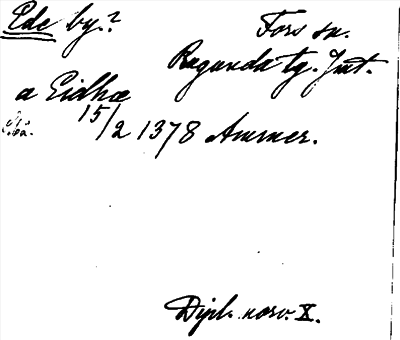 Ede by.? Fors sn.
Ragunda tg. Jmt.
a Eidhæ
15/2 1378 Ammer.
Dipl. norv. X.